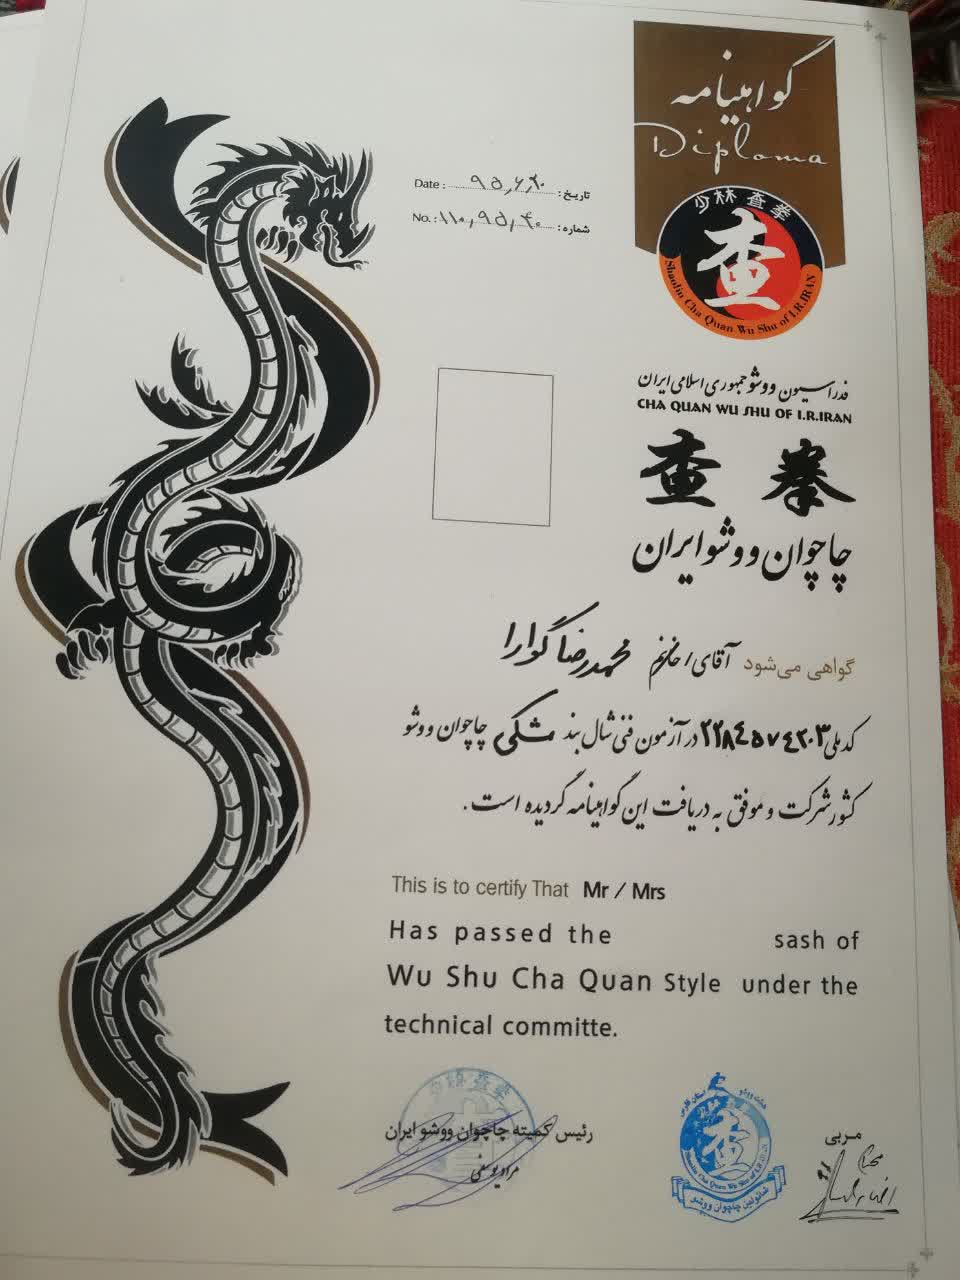 گواهینامه
Diploma
少林查拳
查
Shaolin Cha Quan Wu Shu of I.R.IRAN
Date : ۹۵,۶,۲۰ تاریخ :
No. : ۱۱۰,۹۵,۴۰ شماره :
فدراسیون ووشو جمهوری اسلامی ایران
CHA QUAN WU SHU OF I.R.IRAN
查 拳
چاچوان ووشو ایران
گواهی می‌شود آقای / خانم محمدرضا گوارا
کد ملی در آزمون فنی شال بند مشکی چاچوان ووشو
کشور شرکت و موفق به دریافت این گواهینامه گردیده است.
This is to certify That Mr / Mrs
Has passed the sash of
Wu Shu Cha Quan Style under the
technical committe.
رئیس کمیته چاچوان ووشو ایران
مراد یوسفی
مربی